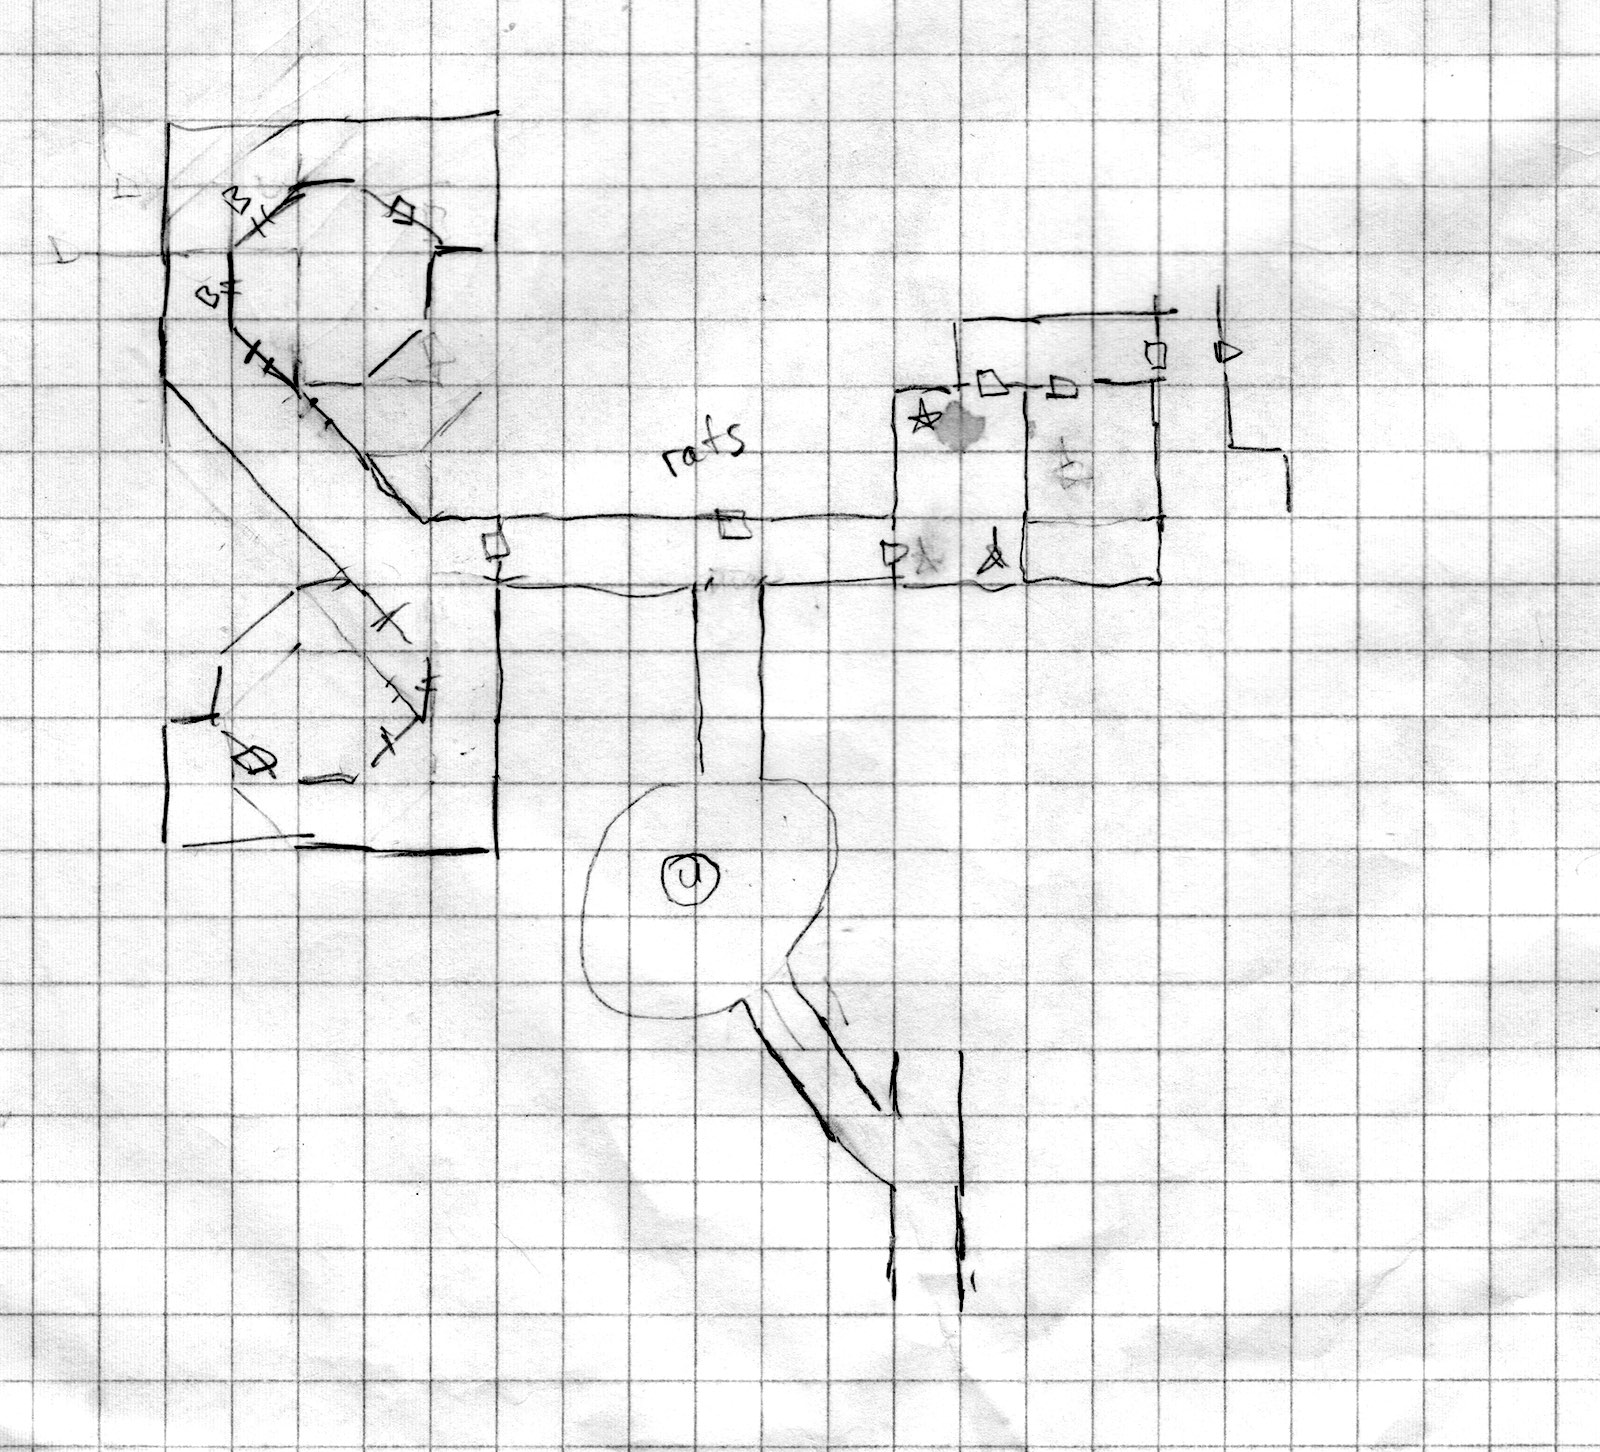 B
B
rats